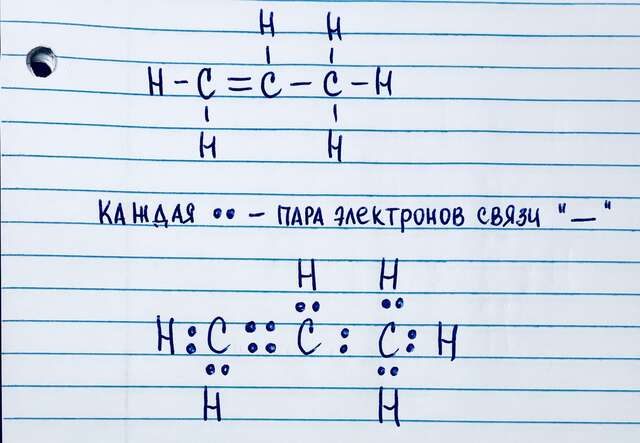 H H
H - C = C - C - H
H H
КАЖДАЯ •• - ПАРА ЭЛЕКТРОНОВ СВЯЗИ "—"
H H
•• ••
H : C :: C : C : H
•• ••
H H